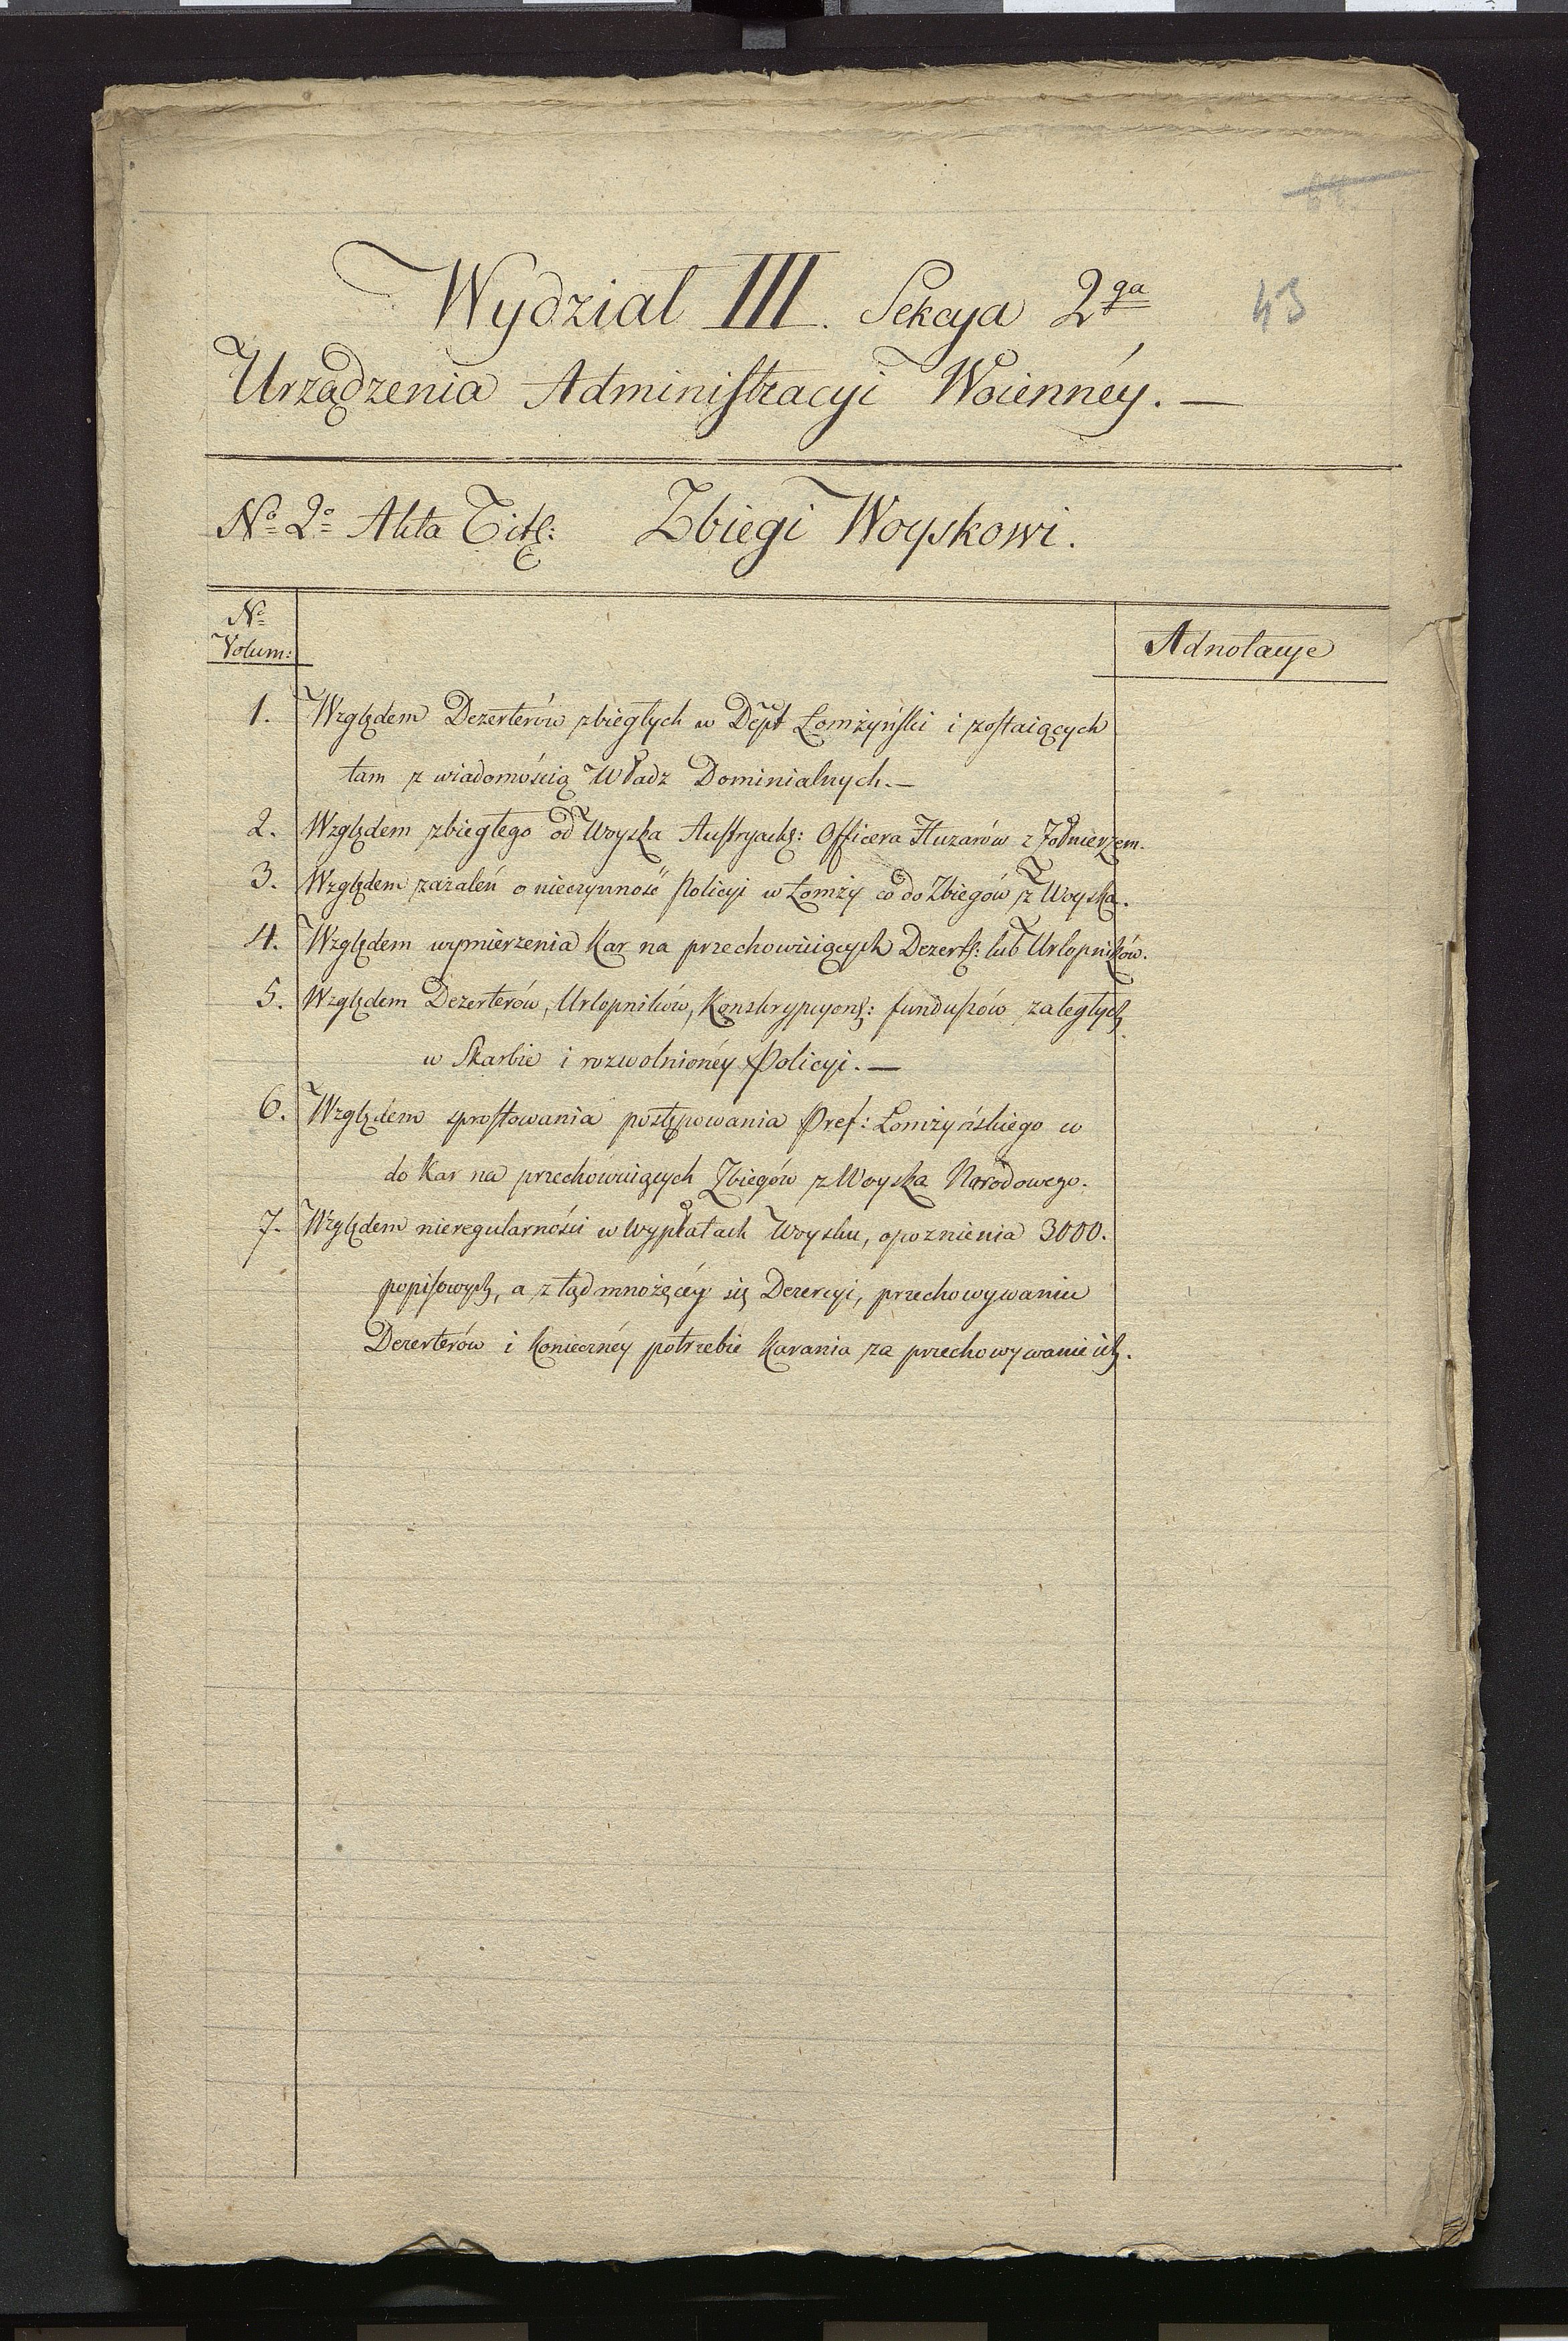 43
Wydział III. Sekcya 2ga
Urządzenia Administracyi Woienney. —
No 2o Akta Titl: Zbiegi Woyskowi.
No
Volum:
Adnotacye
1. Względem Dezerterów zbiegłych w Dept Łomżyński i zostaiących
tam z wiadomością Władz Dominialnych. —
2. Względem zbiegłego od Woyska Austryackch: Officera Huzarów z Żołnierzem.
3. Względem zażaleń o nieczynność Policyi w Łomży co do Zbiegów z Woyska.
4. Względem wymierzenia Kar na przechowuiących Dezert: lub Urlopników.
5. Względem Dezerterów, Urlopników, Konskrypcyonch: funduszów zaległych
w Skarbie i rozwolnioney Policyi. —
6. Względem sprostowania postępowania Pref: Łomżyńskiego co
do Kar na przechowuiących Zbiegów z Woyska Narodowego.
7. Względem nieregularności w wypłatach Woysku, opoznienia 3000.
popisowych, a z tąd mnożęcéy się Dezercyi, przechowywaniu
Dezerterów i Koniecznéy potrzebie Karania za przechowywanie ich.